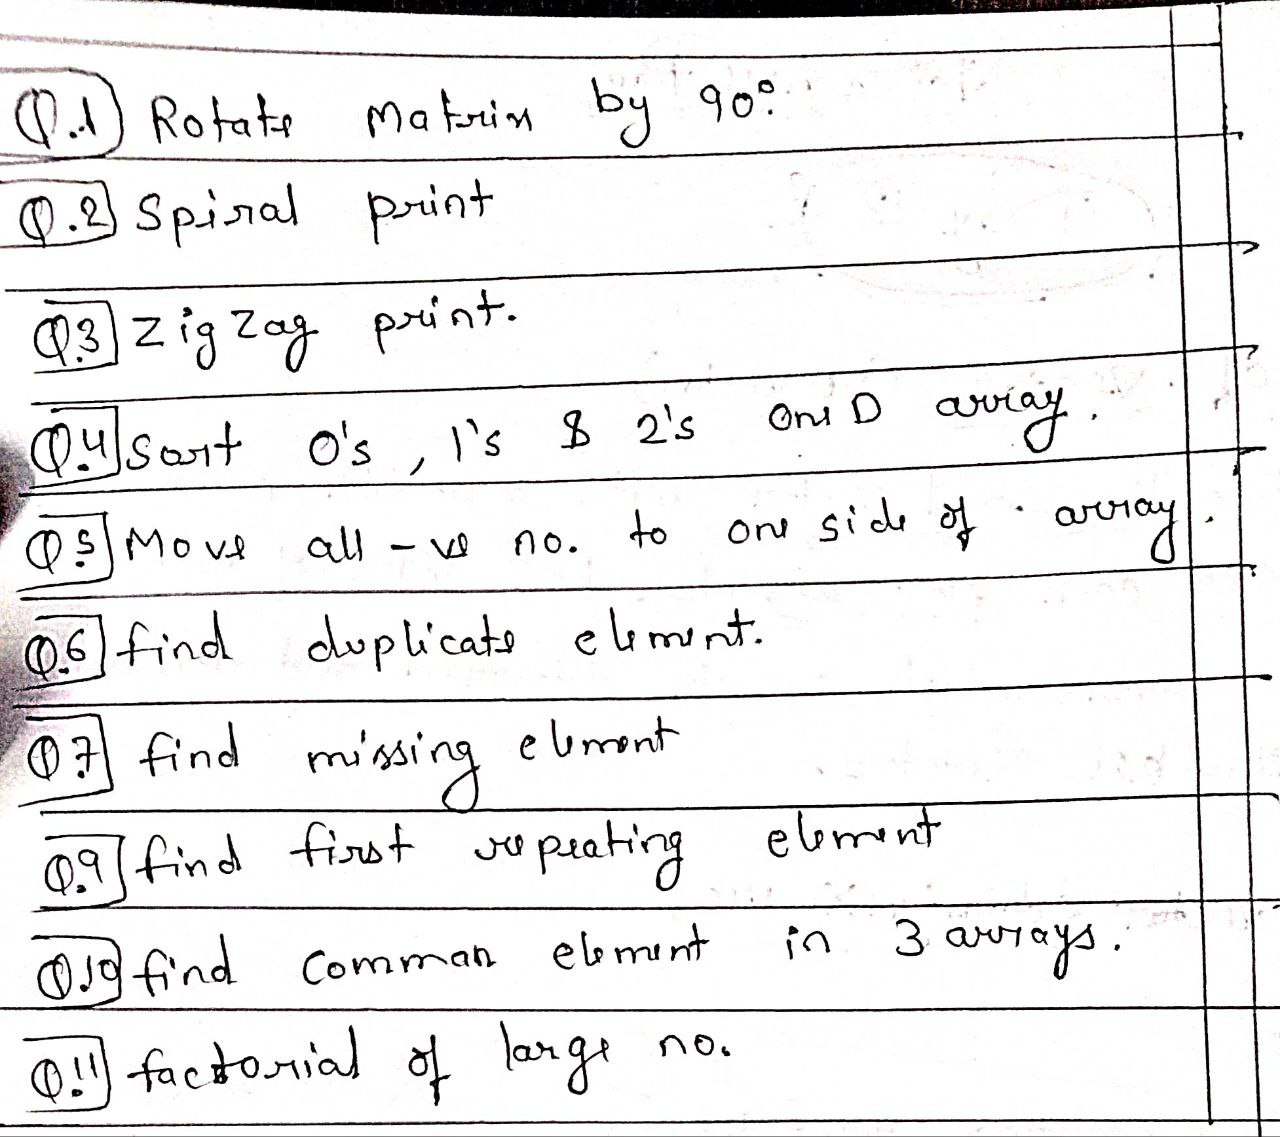 Q.1 Rotate Matrix by 90°.
Q.2 Spiral print
Q.3 Zig Zag print.
Q.4 Sort 0's, 1's & 2's One D array.
Q.5 Move all -ve no. to one side of array.
Q.6 find duplicate element.
Q.7 find missing element
Q.9 find first repeating element
Q.10 find comman element in 3 arrays.
Q.11 factorial of large no.